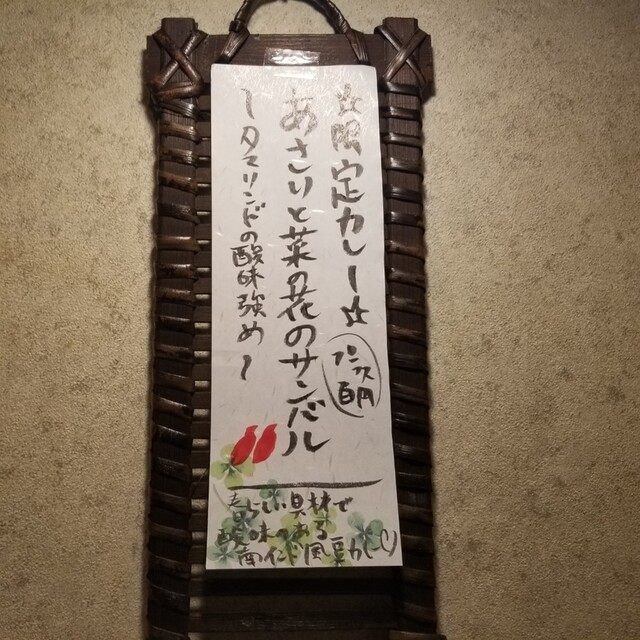 ☆限定カレー☆
プラス百円
あさりと菜の花のサンバル
～タマリンドの酸味強め～
春らしい具材で
酸味ある
南インド風豆カレー